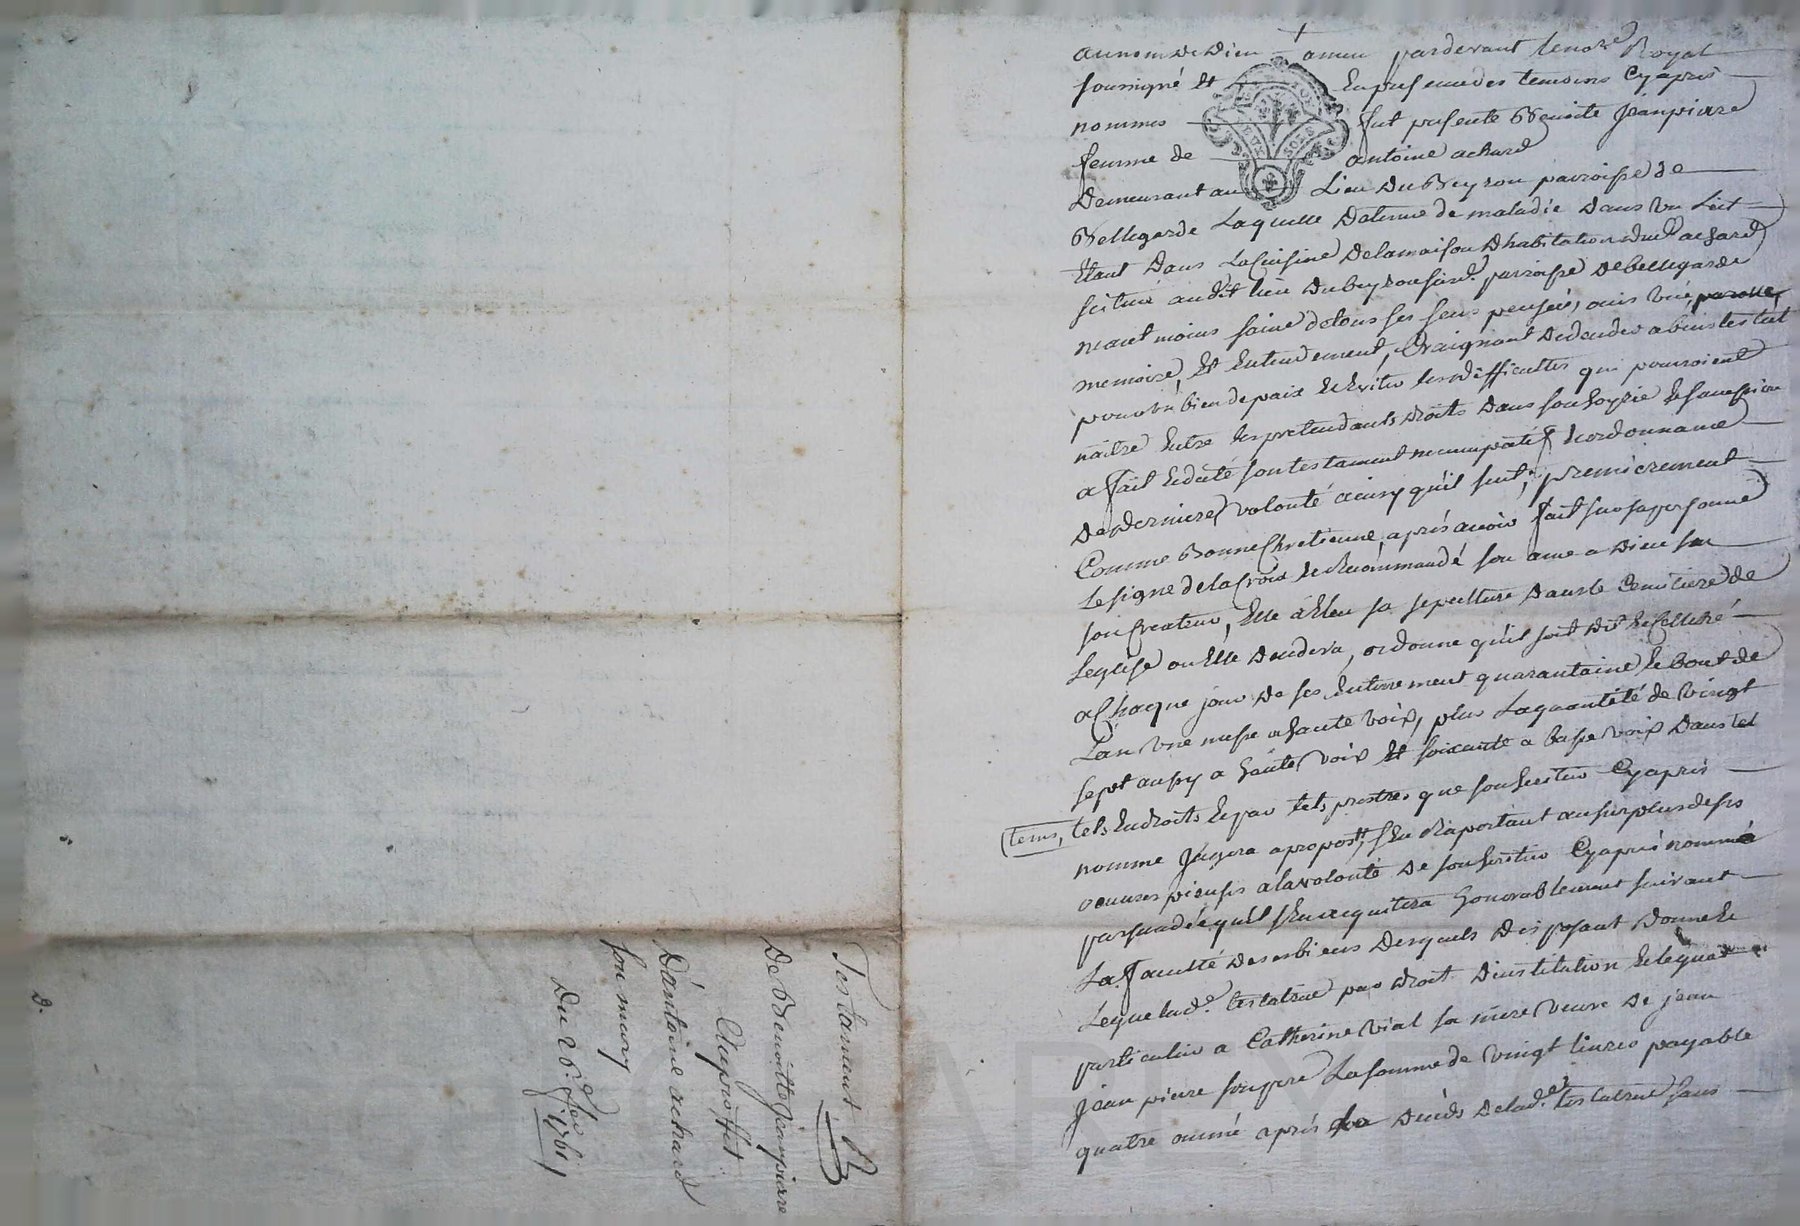 au nom de Dieu amen pardevant le no.re Royal
soussigné et En presence des temoins Cyapres
nommés fut presente Benoite Jeanpierre
femme de antoine achard
Demeurant au Lieu Du Beyron parroisse de
Bellegarde Laquelle Detenue de maladie Dans un Lit
Etant Dans La Cuisine De la maison D'habitation dud. achard
scitué audit lieu Du beyron susd. parroisse de bellegarde
neantmoins saine de tous ses sens pensée, ouis vüe parolle,
memoire, Et Entendement, Craignant De deceder abintestat
pour un bien de paix Et Eviter les difficultes qui pourroient
naitre Entre les pretendants droits Dans son hoyrie Et succession
a fait Et dicté son testament nuncupatif Et ordonnance
De derniere volonté ainsy qu'il suit; premierement
Comme Bonne Chretienne, apres avoir fait sur sa personne
Le signe de la Croix Et Recommandé son ame a Dieu
son Createur, Elle a Eleu sa sepulture Dans le Cemitiere de
Leglise ou Elle Decedera, ordonne qu'il soit Dit Et Celebré
a Chaque jour De ses Enterrement quarantaine Et bout de
L'an une messe a haute voix, plus La quantité de vingt
sept aussy a haute voix Et soixante a basse voix Dans tel
tems, tels Endroits Et par tels prestres que son heritier Cyapres
nommé Jugera a propost, s'En Raportant au surplus de ses
oeuvres pieuses a la volonté De son heritier Cyapres nommé
persuadée qu'il s'En acquitera honorablement suivant
La faculté De ses biens Desquels Disposant Donne Et
Legue lad.e testatrice par Droit D'institution Et legat
particulier a Catherine Vial sa mere veuve De jean
Jean pierre son pere La somme de vingt livres payable
quatre année apres Deceds De lad.e testatrice sans
Testament
De Benoitte Jeanpierre
Au proffit
D'antoine achard
son mary
Du 26.e 1761
D.